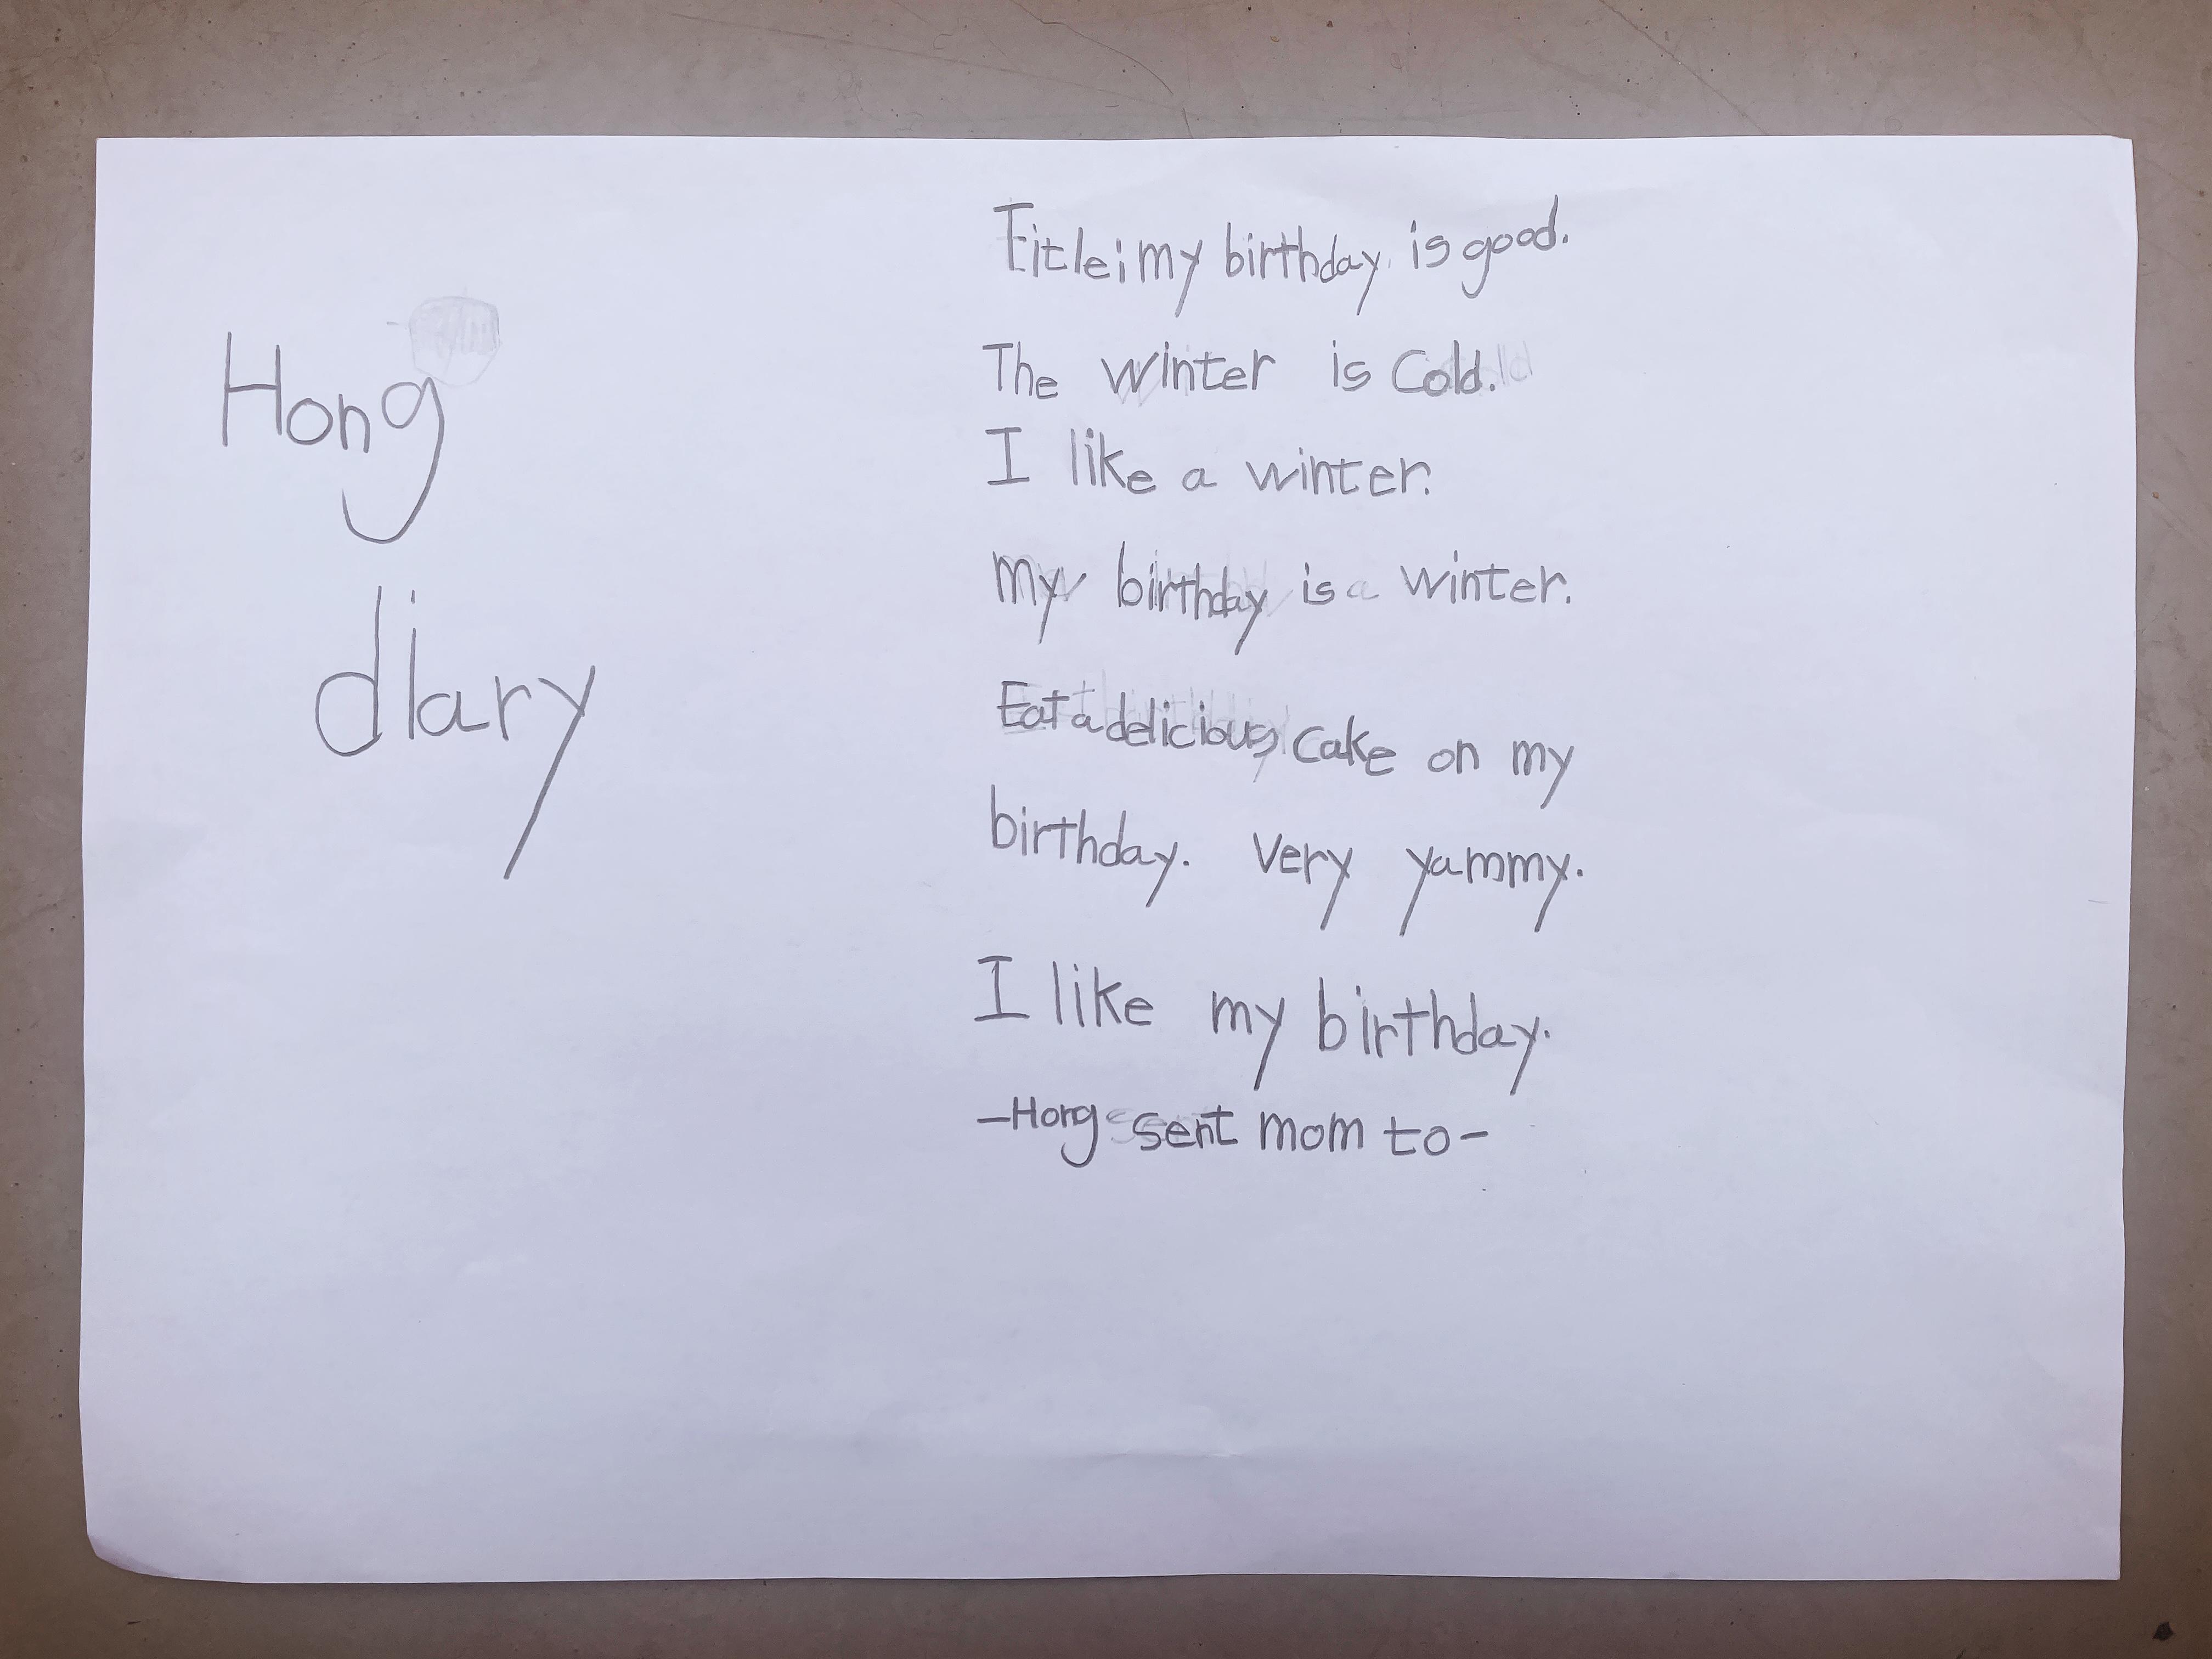 Hong
diary
Title: my birthday is good.
The winter is Cold.
I like a winter.
my birthday is winter.
Eat a delicious cake on my
birthday. Very yammy.
I like my birthday.
-Hong sent mom to-